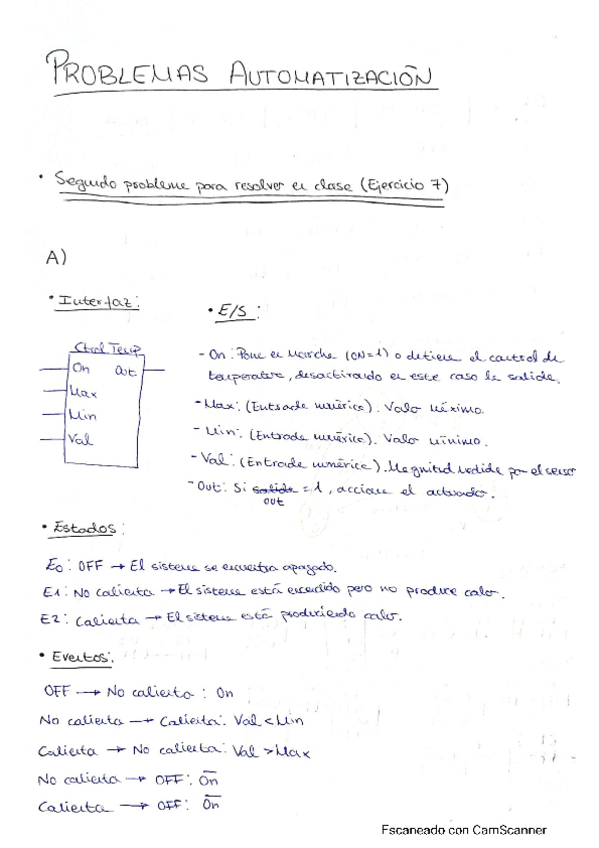 PROBLEMAS AUTOMATIZACIÓN
• Segundo problema para resolver en clase (Ejercicio 7)
A)
• Interfaz:
Ctrol Temp
On Out
Max
Min
Val
• E/S:
- On: Pone en marcha (ON=1) o detiene el control de
temperatura, desactivando en este caso la salida.
- Max: (Entrada numérica). Valor máximo.
- Min: (Entrada numérica). Valor mínimo.
- Val: (Entrada numérica). Magnitud medida por el sensor
- Out: Si salida = 1, acciona el actuador.
out
• Estados:
E0: OFF → El sistema se encuentra apagado.
E1: No calienta → El sistema está encendido pero no produce calor.
E2: Calienta → El sistema está produciendo calor.
• Eventos:
OFF → No calienta: On
No calienta → Calienta: Val < Min
Calienta → No calienta: Val > Max
No calienta → OFF: O̅n̅
Calienta → OFF: O̅n̅
Escaneado con CamScanner